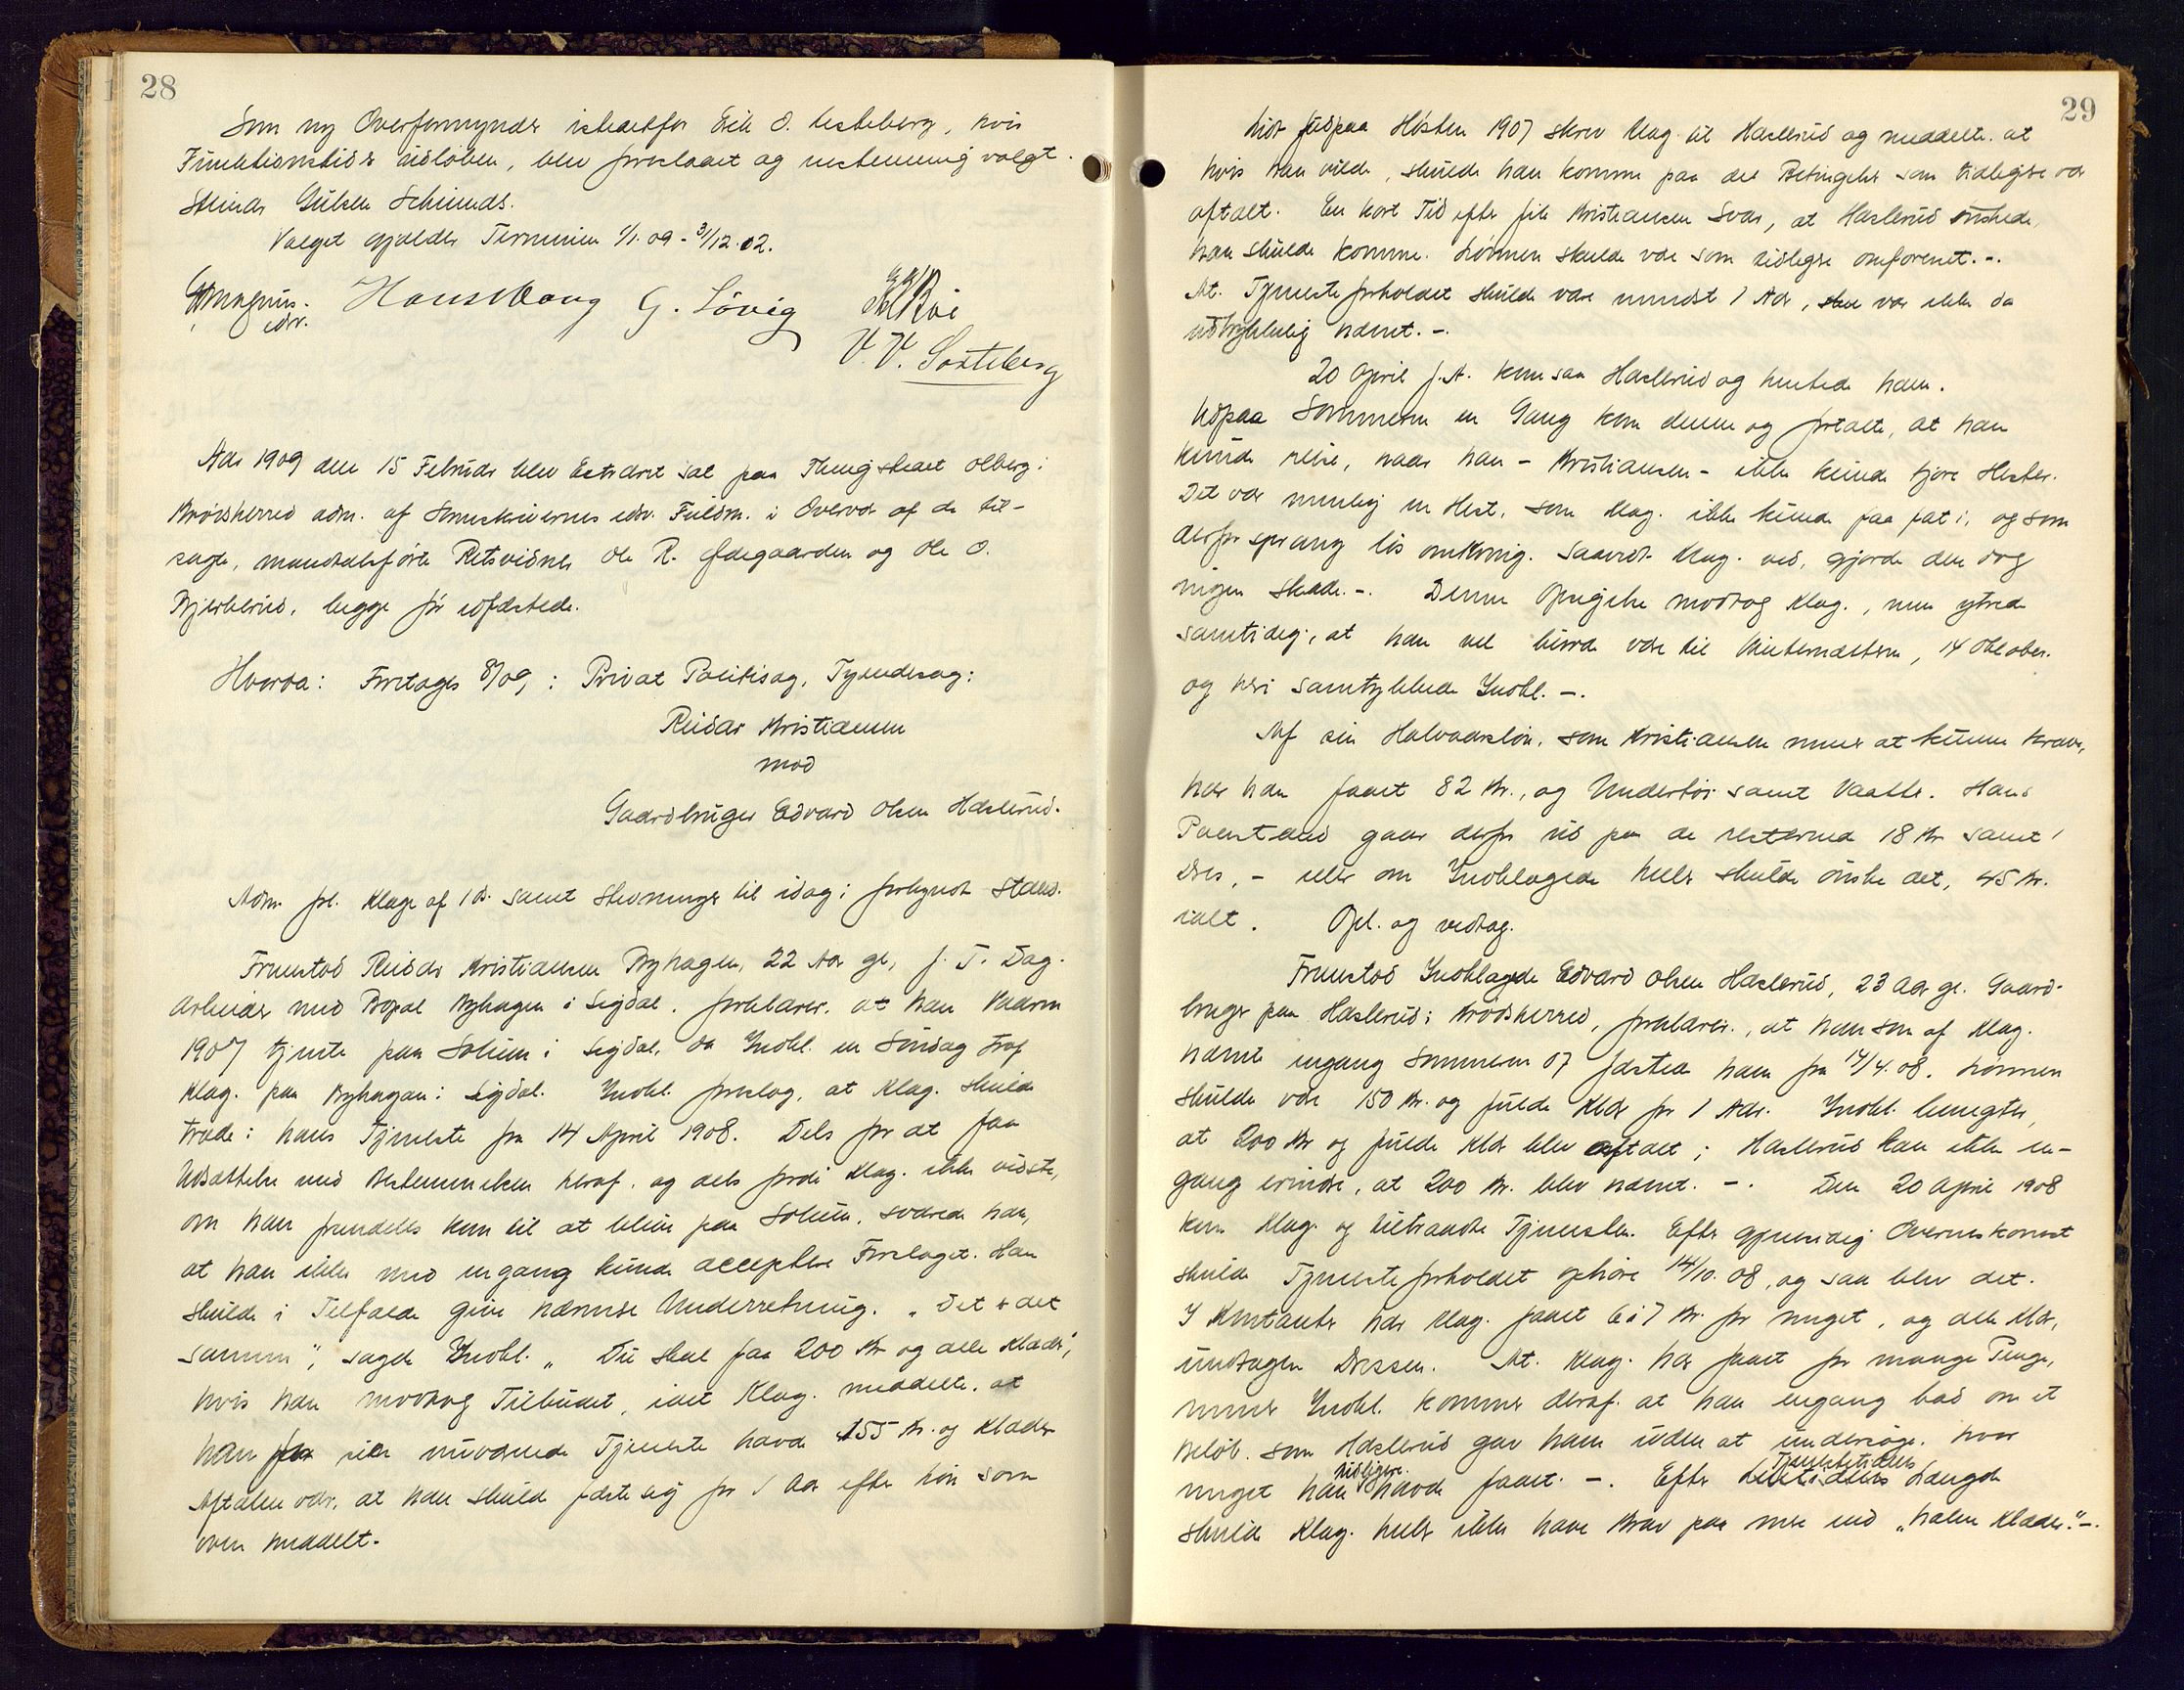 28
Som ny Overformynder istedetfor Erik O. Lesteberg, hvis
Funktionstid er udløben, blev foreslaaet og enstemmig valgt.
Gulsen
Valget gjælder Terminen 1/1.09 - 31/12.12.
Hans Moug G. Lövig
V. V. Sorteberg
Aar 1909 den 15 Februar blev Extraret sat paa Thingstedet Olberg i
Krødsherred adm. af Sorenskriverens edsv. Fuldm. i Overvær af de til-
sagte, mandtalsførte Retsvidner Ole R. Ødegaarden og Ole O.
Bjerkerud, begge før edfæstede.
Hvorda: Foretages 8/09,: Privat Politisag, Tyendesag:
Reidar Kristiansen
mod
Gaardbruger Edvard Olsen Haslerud.
Adm. frl. Klage af 1 ds. samt Stevninger til idag i forkyndt Stand.
Fremstod Reidar Kristiansen Byhagen, 22 Aar gl., f. T. Dag-
arbeider med Bopæl Byhagen i Sigdal, forklarer, at han Vaaren
1907 tjente paa Solum i Sigdal, da Indkl. en Søndag traf
Klag. paa Byhagan i Sigdal. Indkl. foreslog, at Klag. skulde
træde i hans Tjeneste fra 14 April 1908. Dels for at faa
Udsættelse med Bestemmelsen heraf, og dels fordi Klag. ikke vidste,
om han fremdeles kom til at blive paa Solum, svarede han,
at han ikke med engang kunde acceptere Forslaget. Han
skulde i Tilfælde give nærmere Underretning. "Det er det
samme", sagde Indkl. "Du skal faa 200 Kr og alle Klæder",
hvis han modtog Tilbudet, idet Klag. meddelte, at
han for sin nuværende Tjeneste havde 155 Kr. og Klæder
Aftalen var, at han skulde fæste sig for 1 Aar efter Løn som
oven meddelt.
29
Lidt udpaa Høsten 1907 skrev Klag. til Haslerud og meddelte, at
hvis han vilde, skulde han komme paa de Betingelser som tidligere var
aftalt. En kort Tid efter fik Kristiansen Svar, at Haslerud ønskede,
han skulde komme. Lønnen skulde være som tidligere omforenet. -.
At Tjenesteforholdet skulde være mindst 1 Aar, var ikke da
udtrykkelig nævnt. -.
20 April f.A. kom saa Haslerud og hentede ham.
Udpaa Sommeren en Gang kom denne og fortalte, at han
kunde reise, naar han - Kristiansen - ikke kunde kjøre Hester.
Det var nemlig en Hest, som Klag. ikke kunde faa fat i, og som
derfor sprang løs omkring. Saavidt Klag. ved, gjorde den dog
ingen Skade. -. Denne Opsigelse modtog Klag., men ytrede
samtidig, at han vel burde være til Vinternatten, 14 Oktober.
og heri samtykkede Indkl. -.
Af sin Halvaarsløn, som Kristiansen mener at kunne kræve,
har han faaet 82 Kr., og Undertøi samt Vadtlr. Hans
Paastand gaar derfor ud paa de resterende 18 Kr samt 1
Dres, - eller om Indklagede heller skulde ønske det, 45 Kr.
ialt. Opl. og vedtag.
Fremstod Indklagede Edvard Olsen Haslerud, 23 Aar gl. Gaard-
bruger paa Haslerud i Krødsherred, forklarer, at han som af Klag.
nævnt engang Sommeren 07 fæstede ham fra 14/4.08. Lønnen
skulde være 150 Kr. og fulde Klær for 1 Aar. Indkl. benegter,
at 200 Kr og fulde Klær blev aftalt; Haslerud kan ikke en-
gang erindre, at 200 Kr. blev nævnt. -. Den 20 April 1908
kom Klag. og tiltraadte Tjenesten. Efter gjensidig Overenskomst
skulde Tjenesteforholdet ophøre 14/10.08, og saa blev det.
I Kontanter har Klag. faaet 6 à 7 Kr. for meget, og alle Klær,
undtagen Dressen. At Klag. har faaet for mange Penge,
mener Indkl. kommer deraf, at han engang bad om et
Beløb, som Haslerud gav ham uden at undersøge, hvor
meget han tidligere havde faaet. -. Efter Tjenestetidens Længde
skulde Klag. heller ikke have Krav paa mere end "halve Klæder." -.